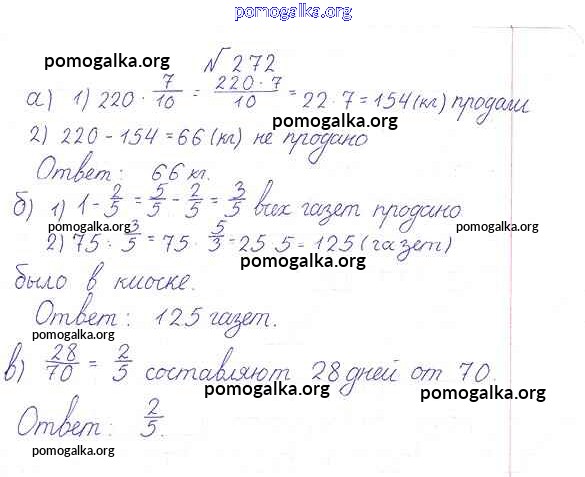 pomogalka.org
pomogalka.org № 272
а) 1) 220 · 7/10 = 220 · 7/10 = 22 · 7 = 154 (кг) продали
pomogalka.org
2) 220 - 154 = 66 (кг) не продано
pomogalka.org
Ответ: 66 кг.
pomogalka.org
б) 1) 1 - 2/5 = 5/5 - 2/5 = 3/5 всех газет продано
pomogalka.org pomogalka.org
2) 75 : 3/5 = 75 · 5/3 = 25 5 = 125 (газет)
pomogalka.org
было в киоске.
Ответ: 125 газет.
pomogalka.org
в) 28/70 = 2/5 составляют 28 дней от 70.
pomogalka.org pomogalka.org
Ответ: 2/5.
pomogalka.org